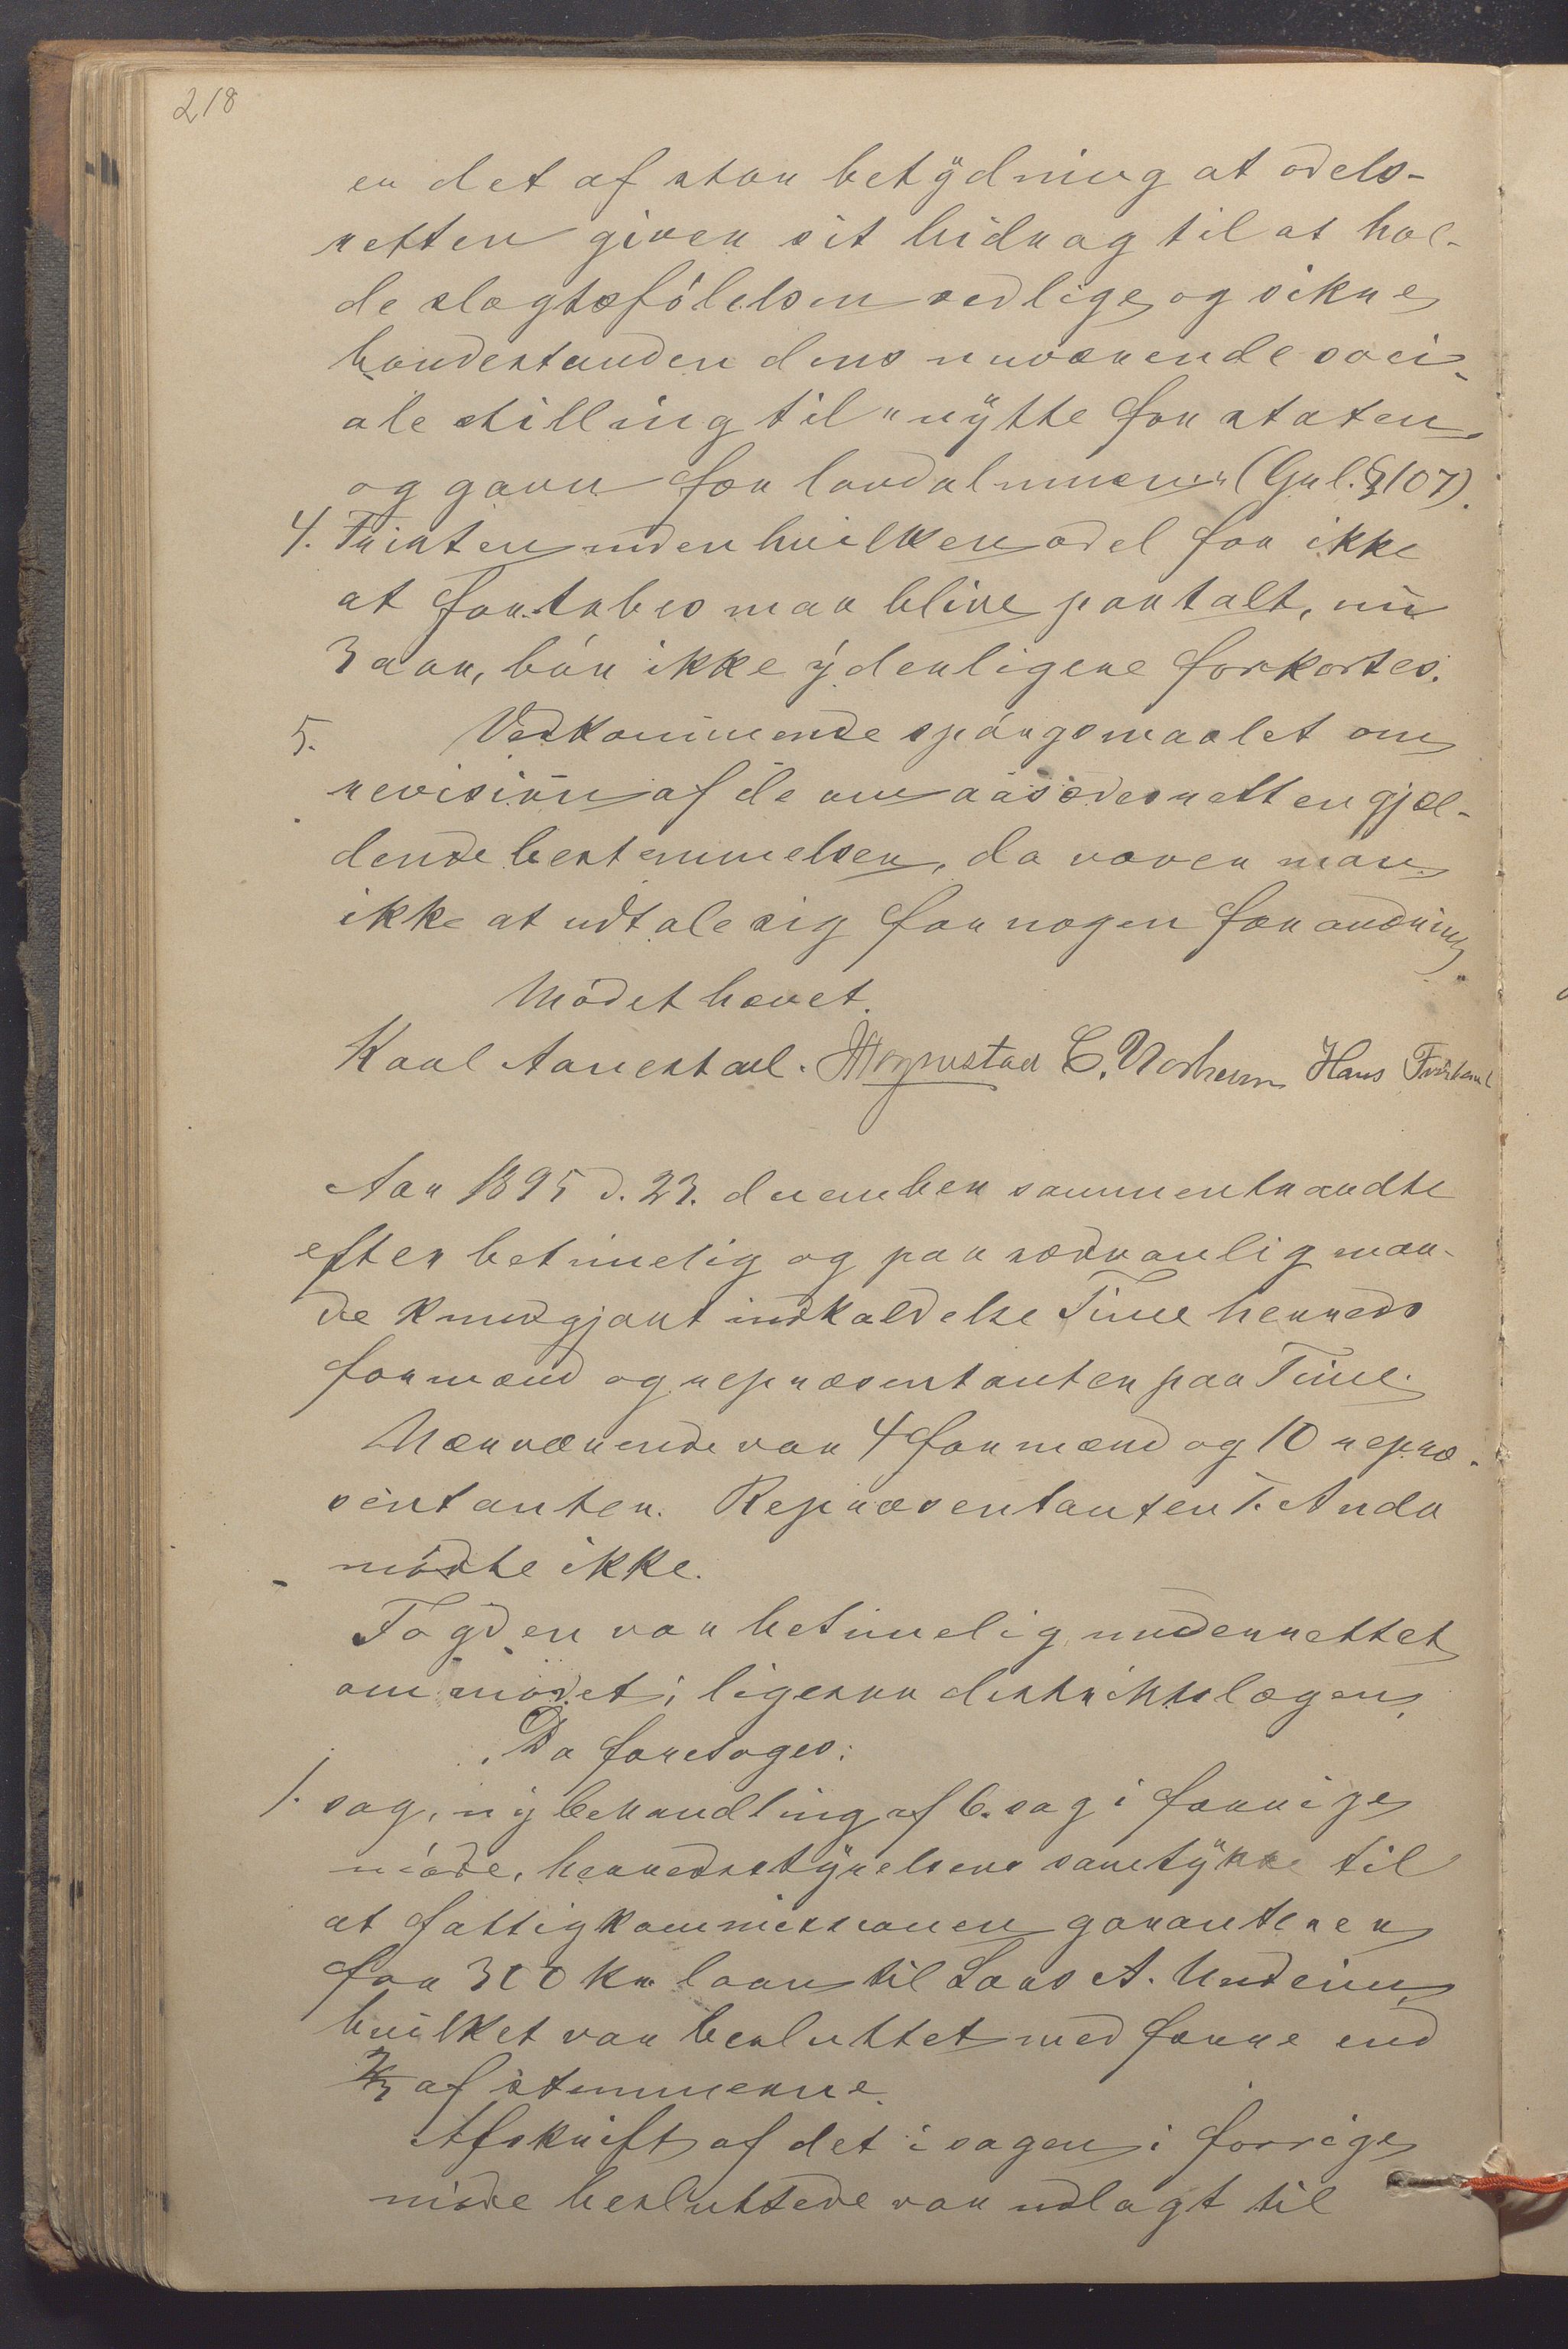 218
er det af stor betydning at odels-
retten giver sit bidrag til at hol-
de slægtsfölelsen vedlige og sikre
bondestanden dens nuværende soci-
ale stilling til „nytte for staten
og gavn for landalmuen“ (Grl. § 107).
4. Fristen inden hvilken odel for ikke
at fortabes maa blive paatalt, nu
3 aar, bör ikke yderligere forkortes.
5. Vedkommende spörgsmaalet om
revision af de om aasædesretten gjæl-
dende bestemmelser, da vover man
ikke at udtale sig for nogen forandring.
Mödet hævet.
Kaal Aanestad. C. Norheim Hans Tværland
Aar 1895 d. 23. december sammentraadte
efter betimelig og paa sædvanlig maa-
de kundgjort indkaldelse Time herreds
formænd og repræsentanter paa Time.
Nærværende var 4 formænd og 10 repræ-
sentanter. Repræsentanten T. Anda
mödte ikke.
Fogden var betimelig underrettet
om mödet, ligesaa distriktslægen.
Da foretoges:
1. sag, ny behandling af 6. sag i forrige
möde, herredsstyrelsens samtykke til
at fattigkommissionen garanterer
for 300 kr laan til Lars A. Undeim,
hvilket var besluttet med færre end
2/3 af stemmerne.
Afskrift af det i sagen i forrige
möde besluttede var udlagt til